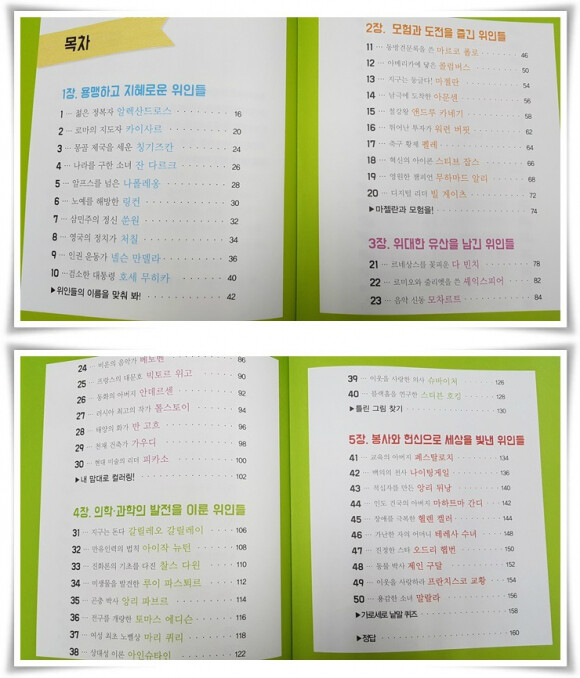 목차
1장. 용맹하고 지혜로운 위인들
1 … 젊은 정복자 알렉산드로스 16
2 … 로마의 지도자 카이사르 20
3 … 몽골 제국을 세운 칭기즈칸 24
4 … 나라를 구한 소녀 잔 다르크 26
5 … 알프스를 넘은 나폴레옹 28
6 … 노예를 해방한 링컨 30
7 … 삼민주의 정신 쑨원 32
8 … 영국의 정치가 처칠 34
9 … 인권 운동가 넬슨 만델라 36
10 … 검소한 대통령 호세 무히카 40
▶위인들의 이름을 맞춰 봐! 42
2장. 모험과 도전을 즐긴 위인들
11 … 동방견문록을 쓴 마르코 폴로 46
12 … 아메리카에 닿은 콜럼버스 50
13 … 지구는 둥글다! 마젤란 54
14 … 남극에 도착한 아문센 56
15 … 철강왕 앤드루 카네기 58
16 … 뛰어난 투자가 워런 버핏 62
17 … 축구 황제 펠레 64
18 … 혁신의 아이콘 스티브 잡스 66
19 … 영원한 챔피언 무하마드 알리 68
20 … 디지털 리더 빌 게이츠 72
▶마젤란과 모험을! 74
3장. 위대한 유산을 남긴 위인들
21 … 르네상스를 꽃피운 다 빈치 78
22 … 로미오와 줄리엣을 쓴 셰익스피어 82
23 … 음악 신동 모차르트 84
24 … 비운의 음악가 베토벤 86
25 … 프랑스의 대문호 빅토르 위고 90
26 … 동화의 아버지 안데르센 92
27 … 러시아 최고의 작가 톨스토이 94
28 … 태양의 화가 반 고흐 96
29 … 천재 건축가 가우디 98
30 … 현대 미술의 리더 피카소 100
▶내 맘대로 컬러링! 102
4장. 의학·과학의 발전을 이룬 위인들
31 … 지구는 돈다 갈릴레오 갈릴레이 106
32 … 만유인력의 법칙 아이작 뉴턴 108
33 … 진화론의 기초를 다진 찰스 다윈 110
34 … 미생물을 발견한 루이 파스퇴르 112
35 … 곤충 박사 앙리 파브르 114
36 … 전구를 개량한 토마스 에디슨 116
37 … 여성 최초 노벨상 마리 퀴리 118
38 … 상대성 이론 아인슈타인 122
39 … 이웃을 사랑한 의사 슈바이처 126
40 … 블랙홀을 연구한 스티븐 호킹 128
▶틀린 그림 찾기 130
5장. 봉사와 헌신으로 세상을 빛낸 위인들
41 … 교육의 아버지 페스탈로치 134
42 … 백의의 천사 나이팅게일 136
43 … 적십자를 만든 앙리 뒤낭 140
44 … 인도 건국의 아버지 마하트마 간디 142
45 … 장애를 극복한 헬렌 켈러 144
46 … 가난한 자의 어머니 테레사 수녀 148
47 … 진정한 스타 오드리 헵번 150
48 … 동물 박사 제인 구달 152
49 … 이웃을 사랑하라 프란치스코 교황 154
50 … 용감한 소녀 말랄라 156
▶가로세로 낱말 퀴즈 158
▶정답 160